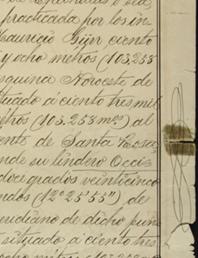 practicada por los in-
Mauricio Gijn ciento
y ocho metros (103.258
esquina Noroeste de
situado á ciento tres mil
metros (103.258 mes) al
ente de Santa Rosa
nde su lindero Occi-
doce grados veinticinco
ndos (12° 25' 55") de
meridiano de dicho pun
situado á ciento tres
ocho metros